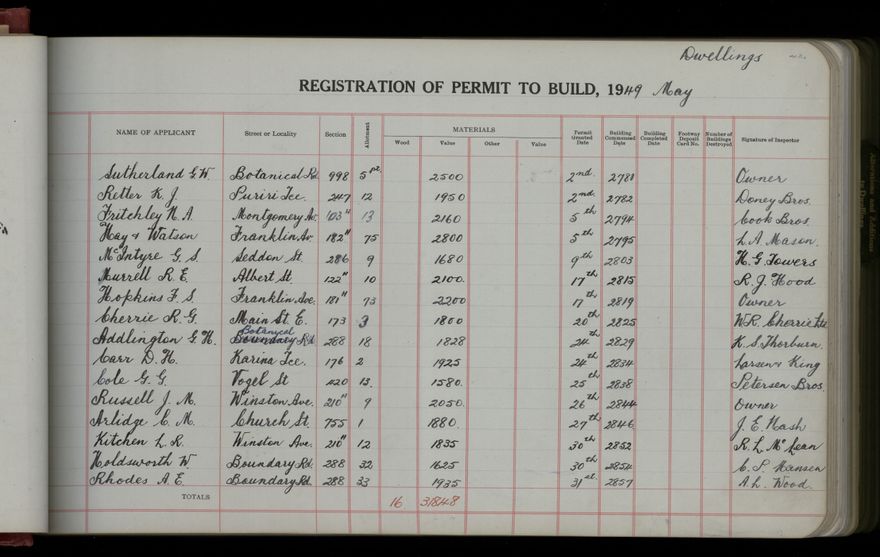 Dwellings
REGISTRATION OF PERMIT TO BUILD, 1949 May
NAME OF APPLICANT Street or Locality Section Allotment MATERIALS Permit Granted Date Building Commenced Date Building Completed Date Footway Deposit Card No. Number of Buildings Destroyed Signature of Inspector
Wood Value Other Value
Sutherland G.W. Botanical Rd. 998 5 pt. 2500 2nd. 2780 Owner
Retter K. J. Puriri Tce. 247 12 1950 2nd. 2782 Doney Bros.
Fritchley N. A. Montgomery Av. 103" 13 2160 5th 2794 Cook Bros.
Hay & Watson Franklin Av. 182" 75 2800 5th 2795 L. A. Mason.
McIntyre G. S. Seddon St. 286 9 1680 9th 2803 H. G. Towers
Murrell R. E. Albert St. 122" 10 2100. 17th 2815 R. J. Hood
Hopkins F. S. Franklin Ave. 181" 73 2200 17th 2819 Owner
Cherrie R. G. Main St. E. 173 3 1800 20th 2825 W.R. Cherrie Ltd
Addlington G. H. Boundary Botanical Rd. 288 18 1828 24th 2829 K. S. Thorburn.
Carr D. H. Karina Tce. 176 2 1925 24th 2834 Larsen & King
Cole G. G. Vogel St 420 13. 1580. 25th 2838 Petersen Bros.
Russell J. M. Winston Ave. 210" 9 2050. 26th 2844 Owner
Arlidge C. M. Church St. 755 1 1880. 27th 2846 J. E. Hash
Kitchen L. R. Winston Ave. 210" 12 1835 30th 2852 R. L. McLean
Holdsworth W. Boundary Rd. 288 32 1625 30th 2854 C. P. Hansen
Rhodes A. E. Boundary Rd. 288 33 1935 31st. 2857 A. L. Wood.
TOTALS 16 31848
Alterations and Additions to Dwellings